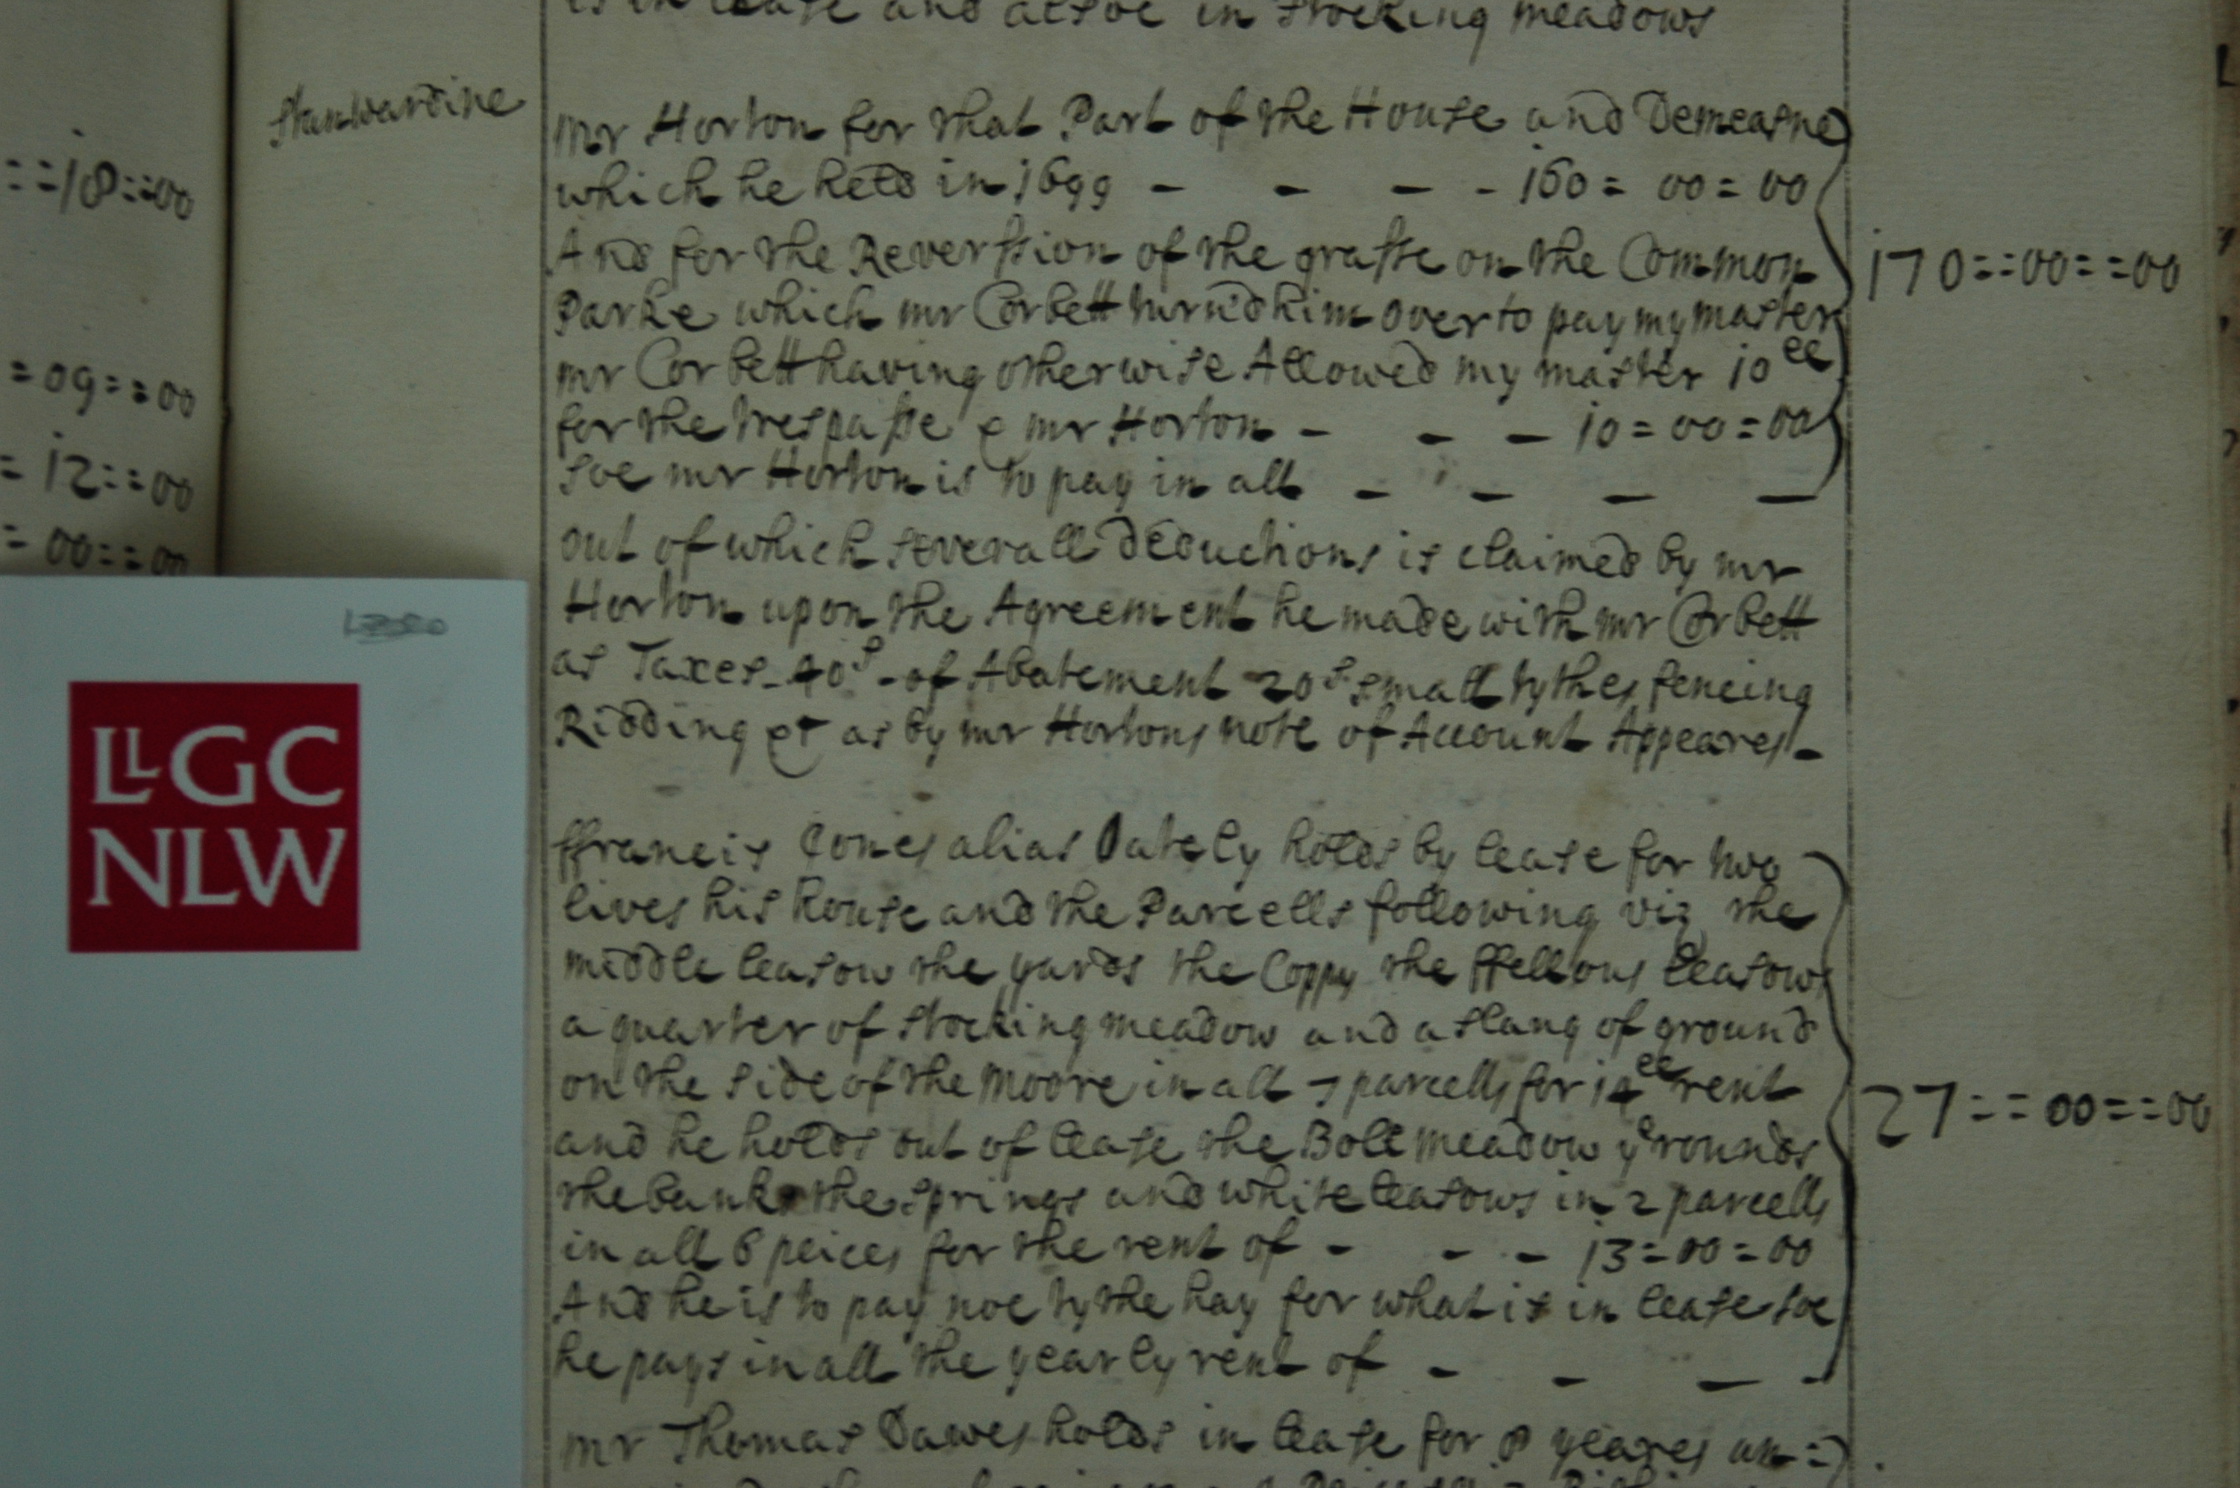 is in lease and alsoe in stocking meadows
Stanwardine
mr Horton for that Part of the House and Demeasne
which he held in 1699 - - - - 160 = 00 = 00
And for the Reverssion of the grasse on the Common
Parke which mr Corbett turnd him over to pay my master
170==00==00
mr Corbett having otherwise Allowed my master 10ll
for the trespasse e mr Horton - - - 10=00=00
soe mr Horton is to pay in all - - - -
out of which severall deductions is claimed by mr
Horton upon the Agreement he made with mr Corbett
as Taxes 40s of Abatement 20s small tythes fencing
Ridding &c as by mr Hortons note of Account Appeares -
ffrancis Jones alias holds by lease for two
lives his house and the Parcells following viz the
middle leasow the yards the Coppy the ffellons leasows
a quarter of stocking meadow and a slang of ground
on the side of the Moore in all 7 parcells for 14ll rent
and he holds out of lease the Boll meadow ye rounds
27==00==00
the bank the springs and white leasows in 2 parcells
in all 6 peices for the rent of - - - 13=00=00
And he is to pay noe tythe hay for what is in lease soe
he pays in all the yearly rent of - - - -
mr Thomas Dawes holds in lease for 8 yeares un=
==18==00
=09==00
=12==00
=00==00
LLGC
NLW